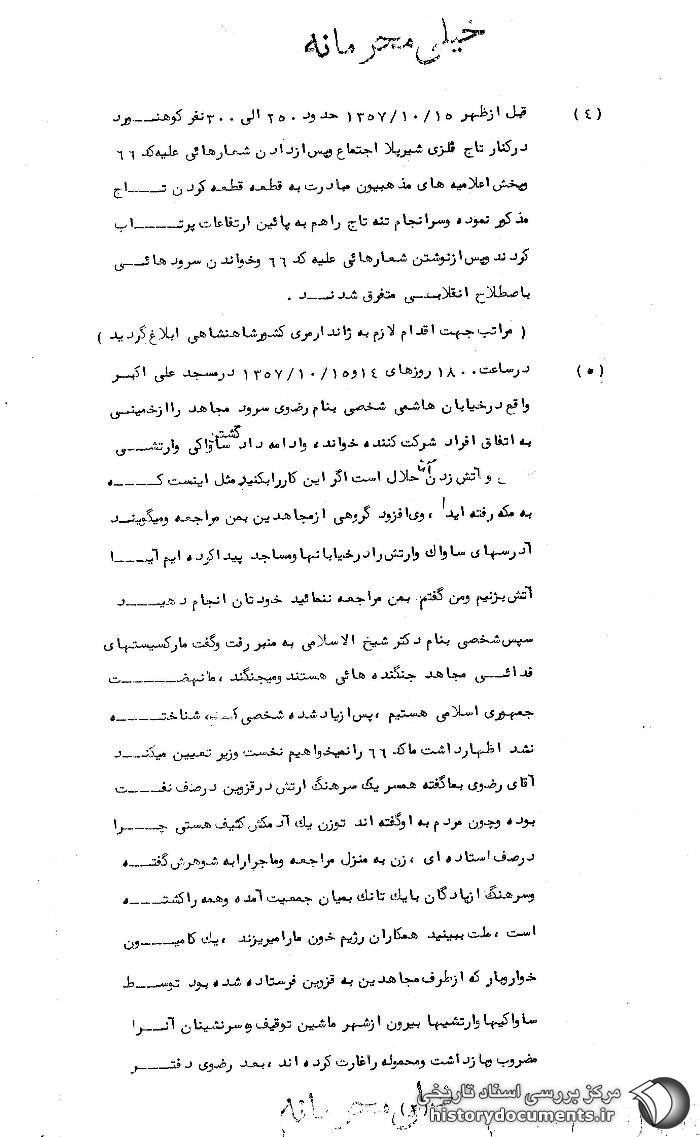 خیلی محرمانه
(۴) قبل از ظهر ۱۳۵۷/۱۰/۱۵ حدود ۲۵۰ الی ۳۰۰ نفر کوهنورد
درکنار تاج فلزی شیرپلا اجتماع وپس ازدادن شعارهائی علیه کد ۶۶
وپخش اعلامیه های مذهبیون مبادرت به قطعه قطعه کردن تاج
مذکور نموده وسرانجام تنه تاج راهم به پائین ارتفاعات پرتاب
کردند وپس ازنوشتن شعارهائی علیه کد ۶۶ وخواندن سرودهائی
باصطلاح انقلابی متفرق شدند .
( مراتب جهت اقدام لازم به ژاندارمری کشورشاهنشاهی ابلاغ گردید )
(۵) درساعت ۱۸۰۰ روزهای ۱۴ و۱۳۵۷/۱۰/۱۵ درمسجد علی اکبر
واقع درخیابان هاشمی شخصی بنام رضوی سرود مجاهد راازخمینی
به اتفاق افراد شرکت کننده خواند، وادامه داد کشتن ساواکی وارتشی
و آتش زدن آنها حلال است اگر این کاررابکنید مثل اینست که
به مکه رفته اید ، وی افزود گروهی ازمجاهدین بمن مراجعه ومیگویند
آدرسهای ساواک وارتش رادرخیابانها ومساجد پیدا کرده ایم آیا
آتش بزنیم ومن گفتم بمن مراجعه ننمائید خودتان انجام دهید
سپس شخصی بنام دکتر شیخ الاسلامی به منبر رفت وگفت مارکسیستهای
فدائی مجاهد جنگنده هائی هستند ومیجنگند ، مانهضت
جمهوری اسلامی هستیم ، پس ازیادشده شخصی که شناخته
نشد اظهارداشت ماکد ۶۶ رانمیخواهیم نخست وزیر تعیین میکند
آقای رضوی بماگفته همسر یک سرهنگ ارتش درقزوین درصف نفت
بوده وچون مردم به اوگفته اند توزن یک آدمکش کثیف هستی چرا
درصف استاده ای ، زن به منزل مراجعه وماجرارابه شوهرش گفته
وسرهنگ ازپادگان بایک تانک بمیان جمعیت آمده وهمه راکشته
است ، ملت ببینید همکاران رژیم خون مارامیریزند ، یک کامیون
خواروبار که ازطرف مجاهدین به قزوین فرستاده شده بود توسط
ساواکیها وارتشیها بیرون ازشهر ماشین توقیف و سرنشینان آنرا
مضروب وبازداشت ومحموله راغارت کرده اند ، بعد رضوی دفتر
خیلی محرمانه
مرکز بررسی اسناد تاریخی
historydocuments.ir